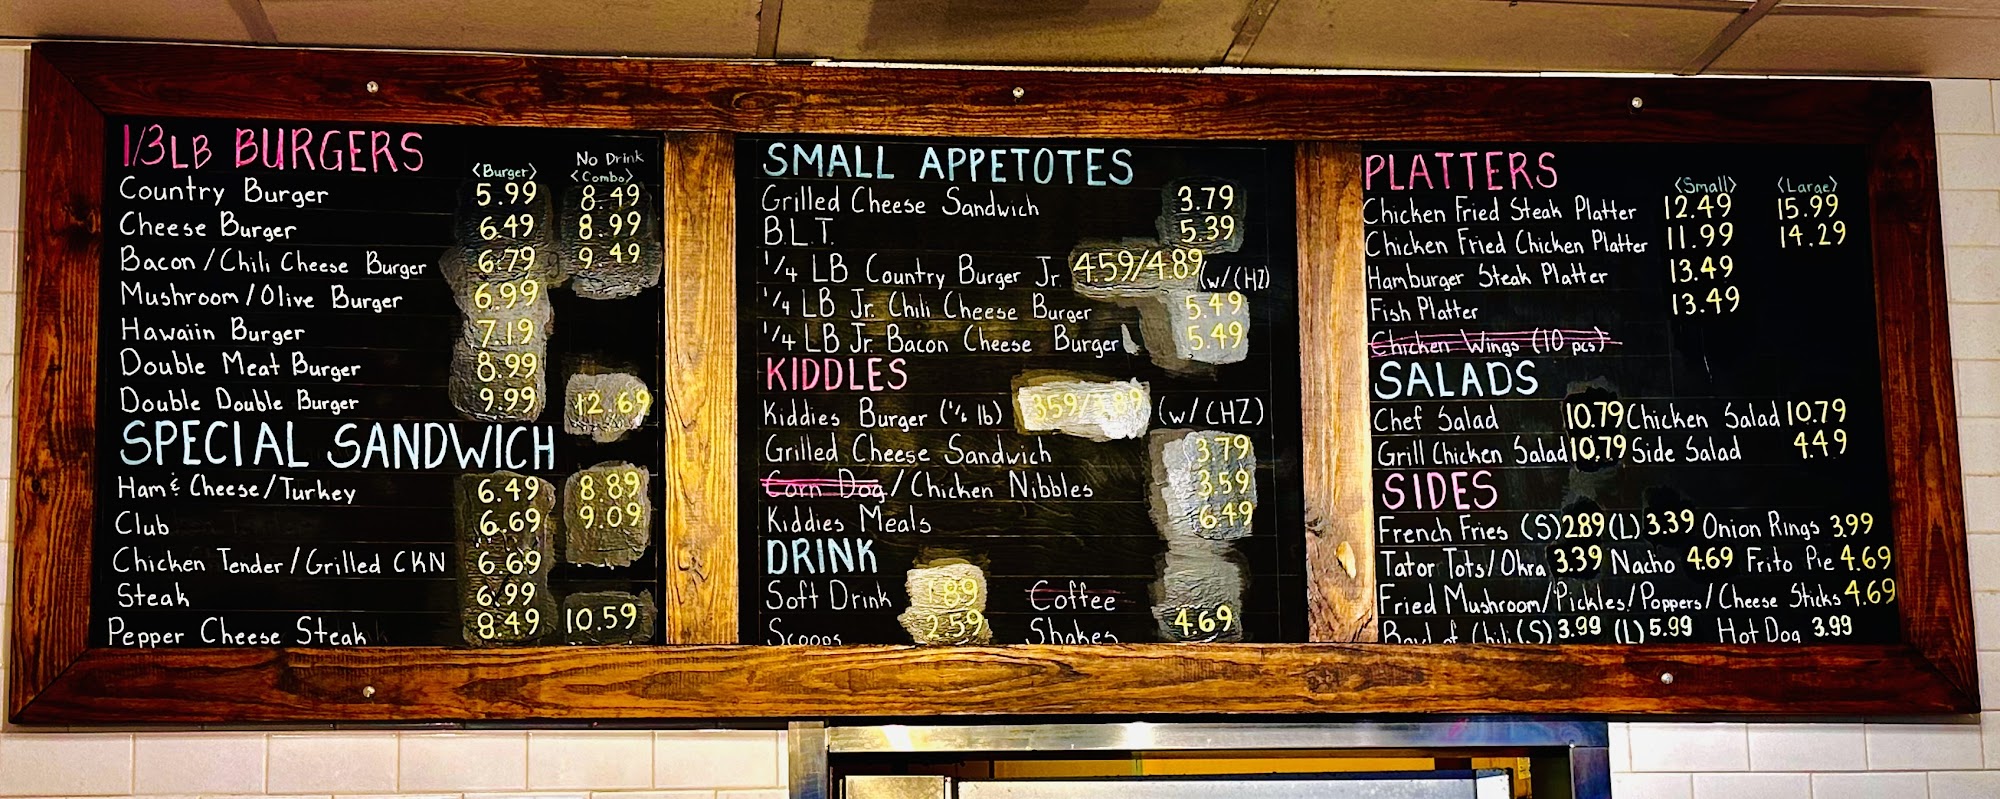 1/3LB BURGERS
<Burger>
No Drink
<Combo>
Country Burger 5.99 8.49
Cheese Burger 6.49 8.99
Bacon/Chili Cheese Burger 6.79 9.49
Mushroom/Olive Burger 6.99
Hawaiin Burger 7.19
Double Meat Burger 8.99
Double Double Burger 9.99 12.69
SPECIAL SANDWICH
Ham & Cheese/Turkey 6.49 8.89
Club 6.69 9.09
Chicken Tender/Grilled CKN 6.69
Steak 6.99
Pepper Cheese Steak 8.49 10.59
SMALL APPETOTES
Grilled Cheese Sandwich 3.79
B.L.T. 5.39
1/4 LB Country Burger Jr. 4.59/4.89 (w/CHZ)
1/4 LB Jr. Chili Cheese Burger 5.49
1/4 LB Jr. Bacon Cheese Burger 5.49
KIDDLES
Kiddies Burger (1/6 lb) 3.59/3.89 (w/CHZ)
Grilled Cheese Sandwich 3.79
Corn Dog/Chicken Nibbles 3.59
Kiddies Meals 6.49
DRINK
Soft Drink 1.89 Coffee
Scoops 2.59 Shakes 4.69
PLATTERS
<Small> <Large>
Chicken Fried Steak Platter 12.49 15.99
Chicken Fried Chicken Platter 11.99 14.29
Hamburger Steak Platter 13.49
Fish Platter 13.49
Chicken Wings (10 pcs)
SALADS
Chef Salad 10.79 Chicken Salad 10.79
Grill Chicken Salad 10.79 Side Salad 4.49
SIDES
French Fries (S) 2.89 (L) 3.39 Onion Rings 3.99
Tator Tots/Okra 3.39 Nacho 4.69 Frito Pie 4.69
Fried Mushroom/Pickles/Poppers/Cheese Sticks 4.69
Bowl of Chili (S) 3.99 (L) 5.99 Hot Dog 3.99